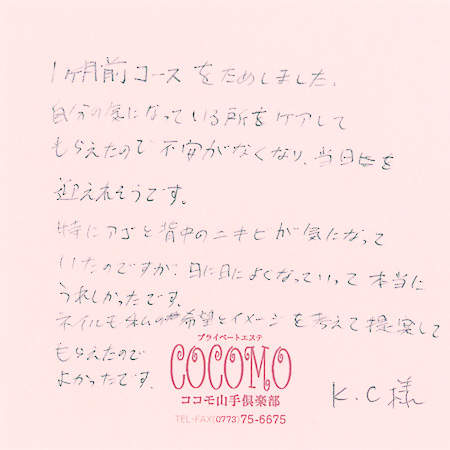 1ヶ月前コースをためしました。
自分の気になっている所をケアして
もらえたので不安がなくなり、当日を
迎えれそうです。
特にアゴと背中のニキビが気になって
いたのですが、日に日によくなっていって本当に
うれしかったです。
ネイルも私の希望とイメージを考えて提案して
もらえたので
よかったです。
プライベートエステ
COCOMO
ココモ山手倶楽部
TEL・FAX(0773)75-6675
K.C様